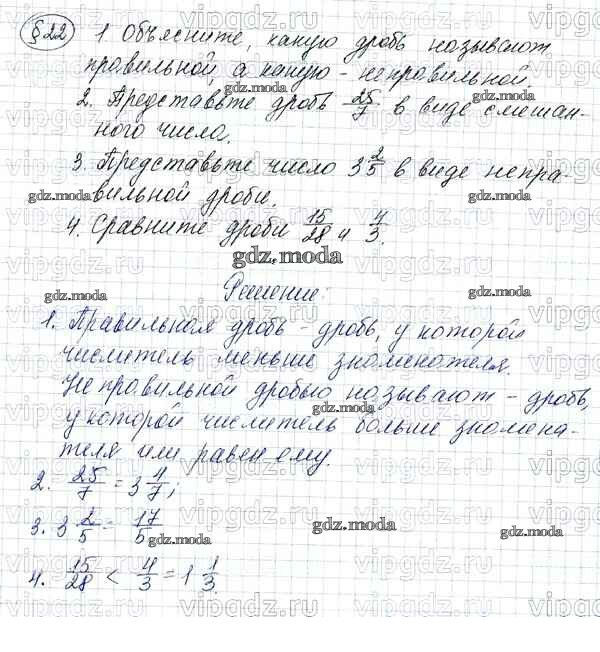 § 22 1 Объясните, какую дробь называют
правильной, а какую - неправильной.
2. Представьте дробь 25/7 в виде смешан-
ного числа.
3. Представьте число 3 2/5 в виде непра-
вильной дроби.
4. Сравните дроби 15/28 и 4/3.
Решение:
1. Правильная дробь - дробь, у которой
числитель меньше знаменателя.
Неправильной дробью называют - дробь,
у которой числитель больше знамена-
теля или равен ему.
2. 25/7 = 3 4/7;
3. 3 2/5 = 17/5
4. 15/28 < 4/3 = 1 1/3.